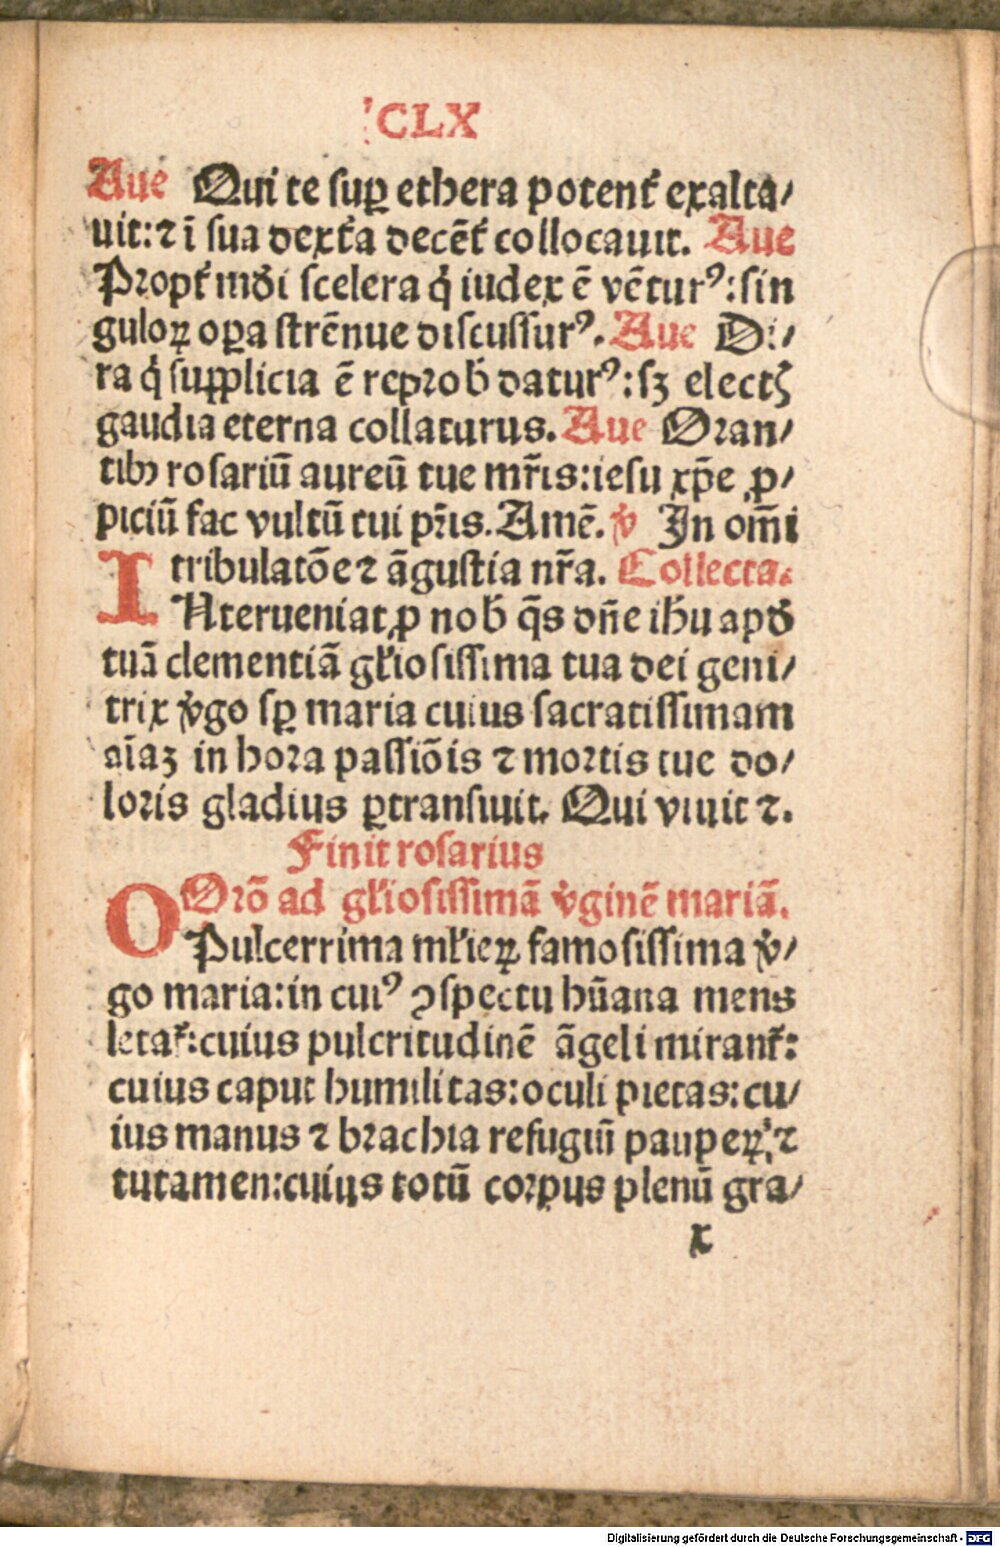 CLX
Aue Qui te suꝑ ethera potent᷑ exalta/
uit:⁊ ī sua dext᷑a decēt᷑ collocauit. Aue
Propt᷑ mūdi scelera q̇ iudex ē vētur⁹:sin
guloꝝ oꝑa strēnue discussur⁹. Aue Di/
ra q̇ supplicia ē reprob̄ datur⁹:sꝫ electꝭ
gaudia eterna collaturus. Aue Oran/
tibꝫ rosariū aureū tue mr̄is:iesu xp̄e ꝓ/
piciū fac vultū tui pr̄is. Amē. v̇ In om̄i
tribulatōe ⁊ āgustia nr̄a. Collecta.
INterueniat ꝓ nob̄ q̄s dn̄e ih̄u apd̄
tuā clementiā gl̄iosissima tua dei geni/
trix v̇go sꝑ maria cuius sacratissimam
aīaꝫ in hora passiōis ⁊ mortis tue do/
loris gladius ꝑtransiuit. Qui viuit ⁊.
Finit rosarius
Orō ad gl̄iosissimā v̇ginē mariā.
O Pulcerrima ml̄ieꝝ famosissima v̇/
go maria:in cui⁹ ꝯspectu hūana mens
letat᷑:cuius pulcritudinē āgeli mirant᷑:
cuius caput humilitas:oculi pietas:cu/
ius manus ⁊ brachia refugiū pauperꝝ ⁊
tutamen:cuius totū corpus plenū gra/
x
Digitalisierung gefördert durch die Deutsche Forschungsgemeinschaft - DFG